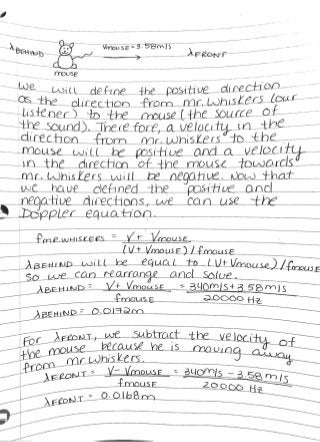 λBEHIND Vmouse = 3.58m/s λFRONT
mouse
We will define the positive direction
as the direction from mr. whiskers (our
listener) to the mouse (the source of
the sound). Therefore, a velocity in the
direction from mr. whiskers to the
mouse will be positive and a velocity
in the direction of the mouse towards
mr. whiskers will be negative. Now that
we have defined the positive and
negative directions, we can use the
Doppler equation.
fmr.WHISKERS = V + Vmouse
(V + Vmouse) / fmouse
λBEHIND will be equal to (V + Vmouse) / fmouse
so we can rearrange and solve.
λBEHIND = V + Vmouse = 340m/s + 3.58m/s
fmouse 20000 Hz
λBEHIND = 0.0172m
For λFRONT, we subtract the velocity of
the mouse because he is moving away
from mr. whiskers.
λFRONT = V - Vmouse = 340m/s - 3.58m/s
fmouse 20000 Hz
λFRONT = 0.0168m